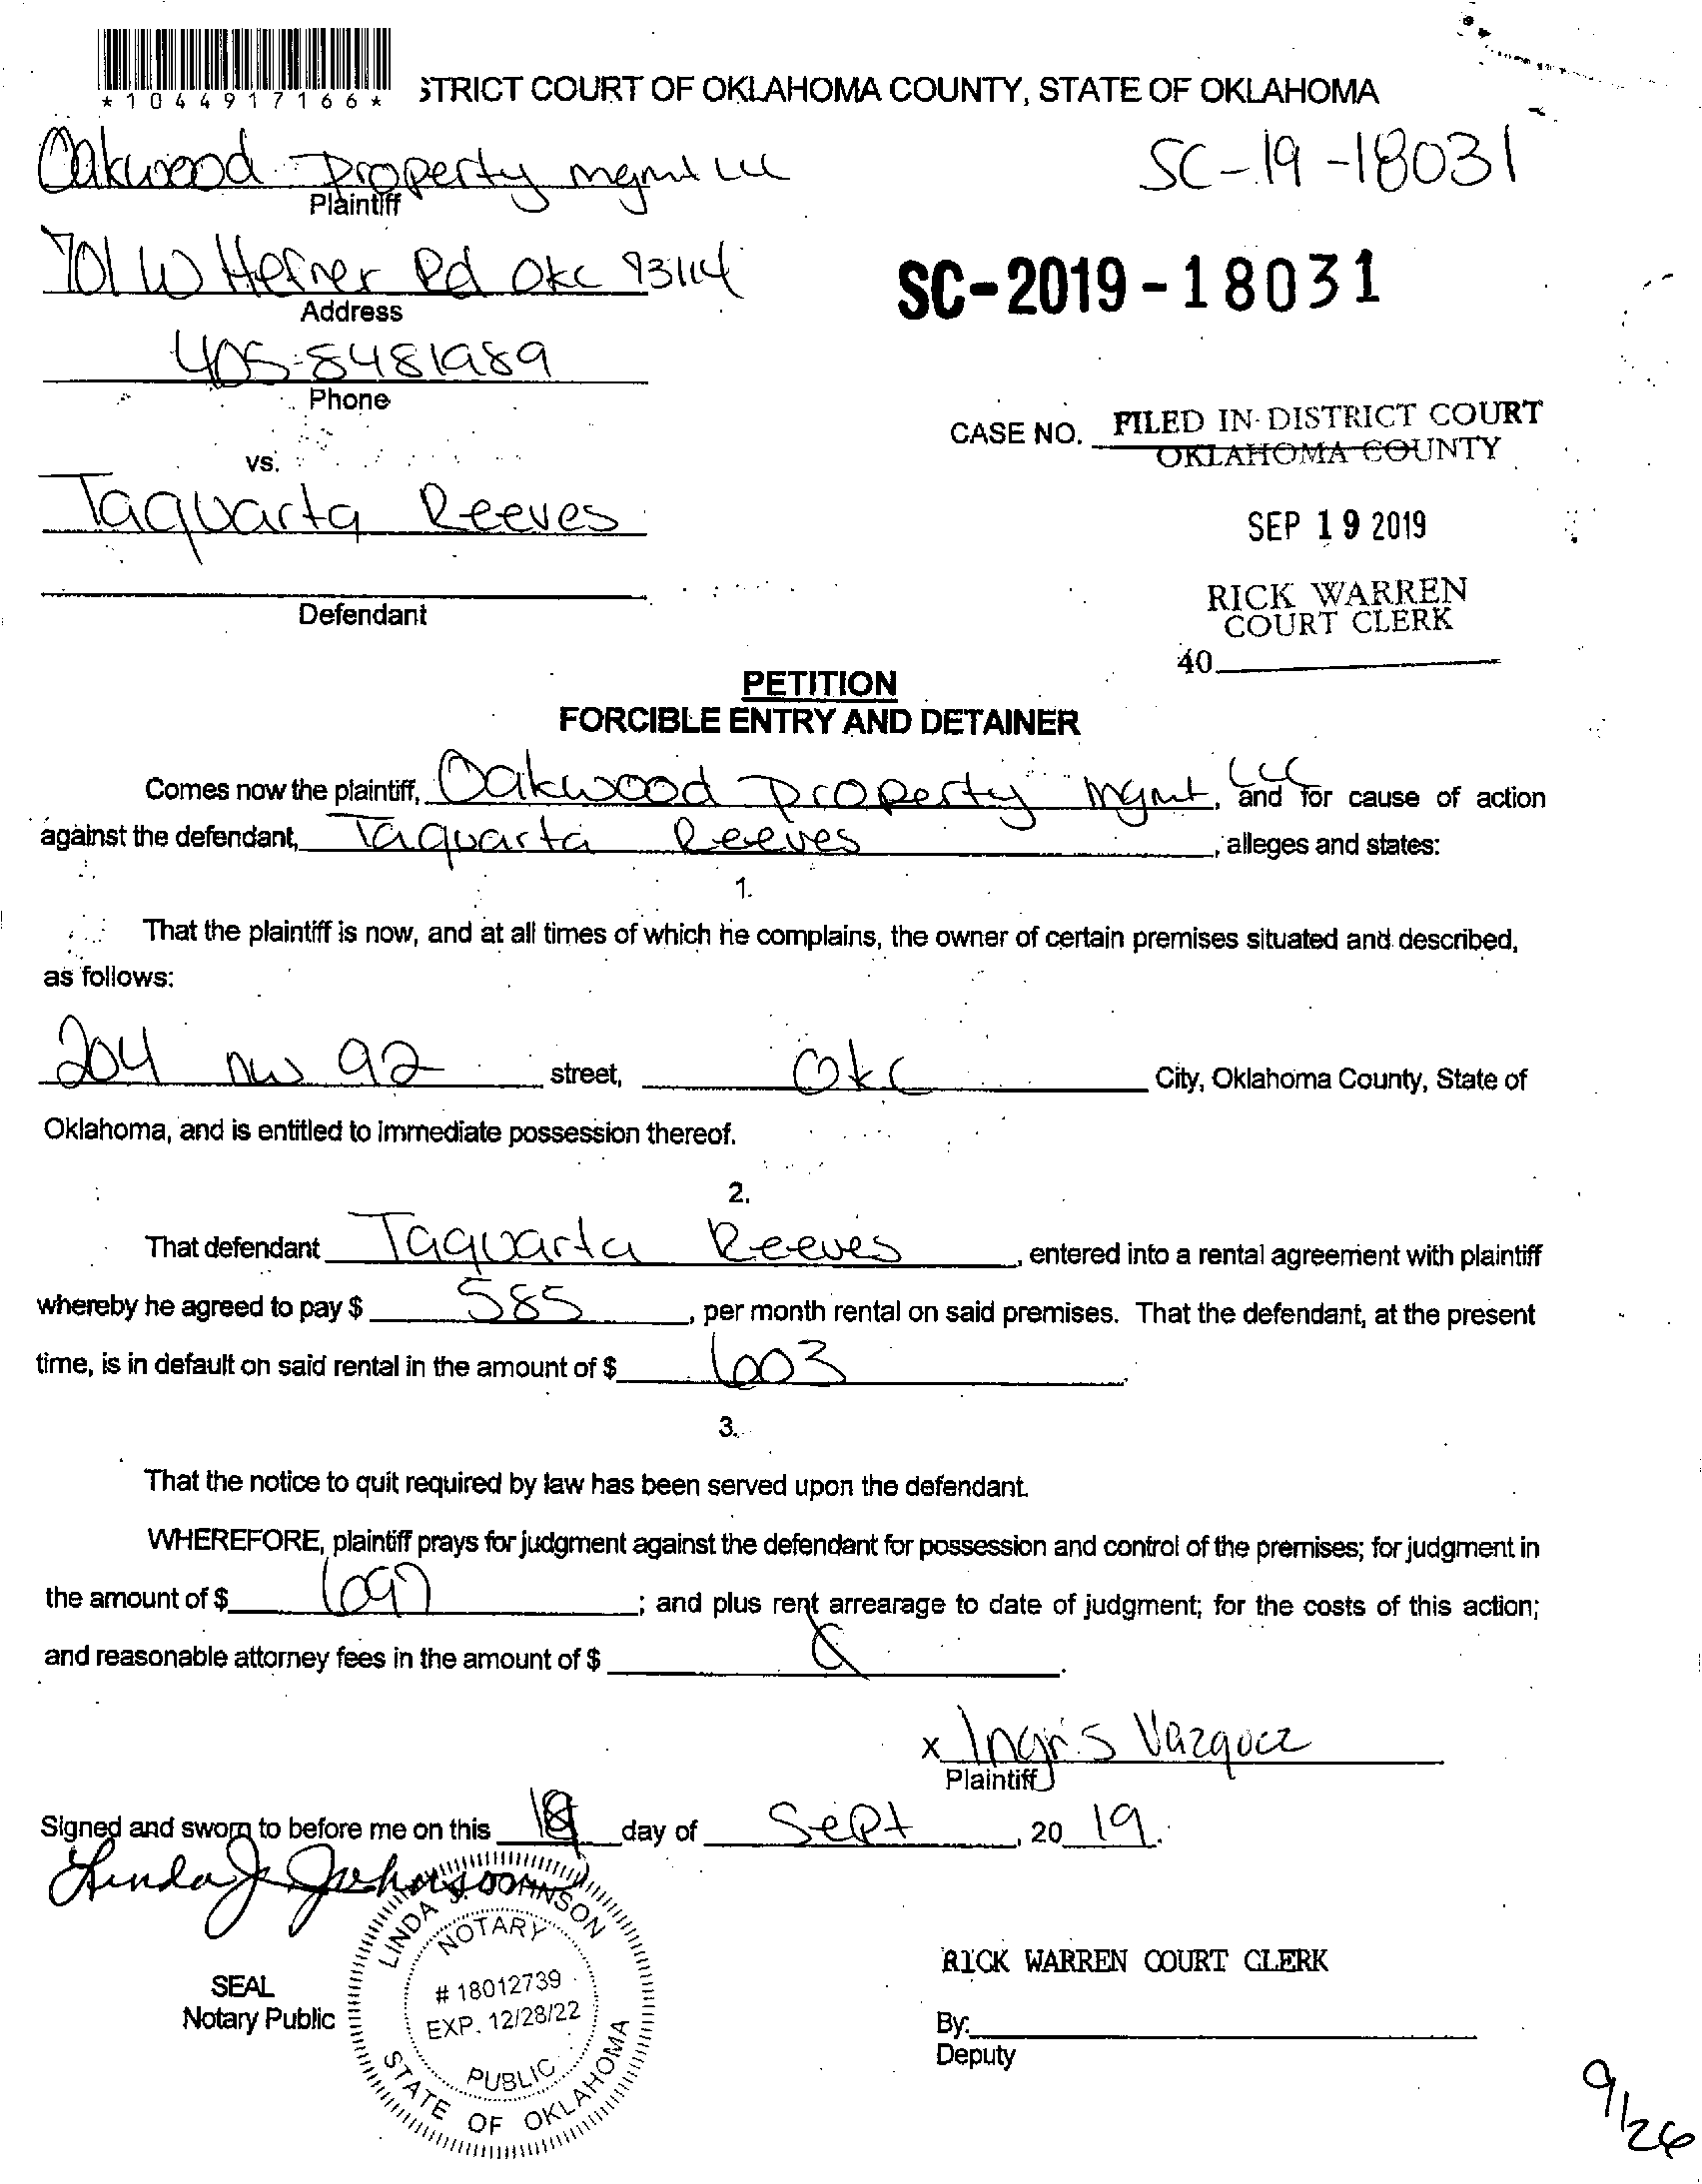 *1044917166*
STRICT COURT OF OKLAHOMA COUNTY, STATE OF OKLAHOMA
Oakwood Property mgmt LLC
Plaintiff
SC-19-18031
701 W Hefner Rd OKC 73114
Address
SC-2019-18031
405-8481989
Phone
CASE NO. FILED IN DISTRICT COURT
OKLAHOMA COUNTY
vs.
Taquarta Reeves
SEP 19 2019
Defendant
RICK WARREN
COURT CLERK
40
PETITION
FORCIBLE ENTRY AND DETAINER
Comes now the plaintiff, Oakwood Property Mgmt, LLC and for cause of action
against the defendant, Taquarta Reeves, alleges and states:
1.
That the plaintiff is now, and at all times of which he complains, the owner of certain premises situated and described,
as follows:
204 NW 92 street, OKC City, Oklahoma County, State of
Oklahoma, and is entitled to immediate possession thereof.
2.
That defendant Taquarta Reeves, entered into a rental agreement with plaintiff
whereby he agreed to pay $ 585, per month rental on said premises. That the defendant, at the present
time, is in default on said rental in the amount of $ 603.
3.
That the notice to quit required by law has been served upon the defendant.
WHEREFORE, plaintiff prays for judgment against the defendant for possession and control of the premises; for judgment in
the amount of $ 697; and plus rent arrearage to date of judgment; for the costs of this action;
and reasonable attorney fees in the amount of $
x Ingris Vazquez
Plaintiff
Signed and sworn to before me on this day of Sept, 20 19.
Linda J Johnson
LINDA J. JOHNSON
NOTARY
# 18012739
EXP. 12/28/22
PUBLIC
STATE OF OKLAHOMA
SEAL
Notary Public
RICK WARREN COURT CLERK
By:
Deputy
9/26